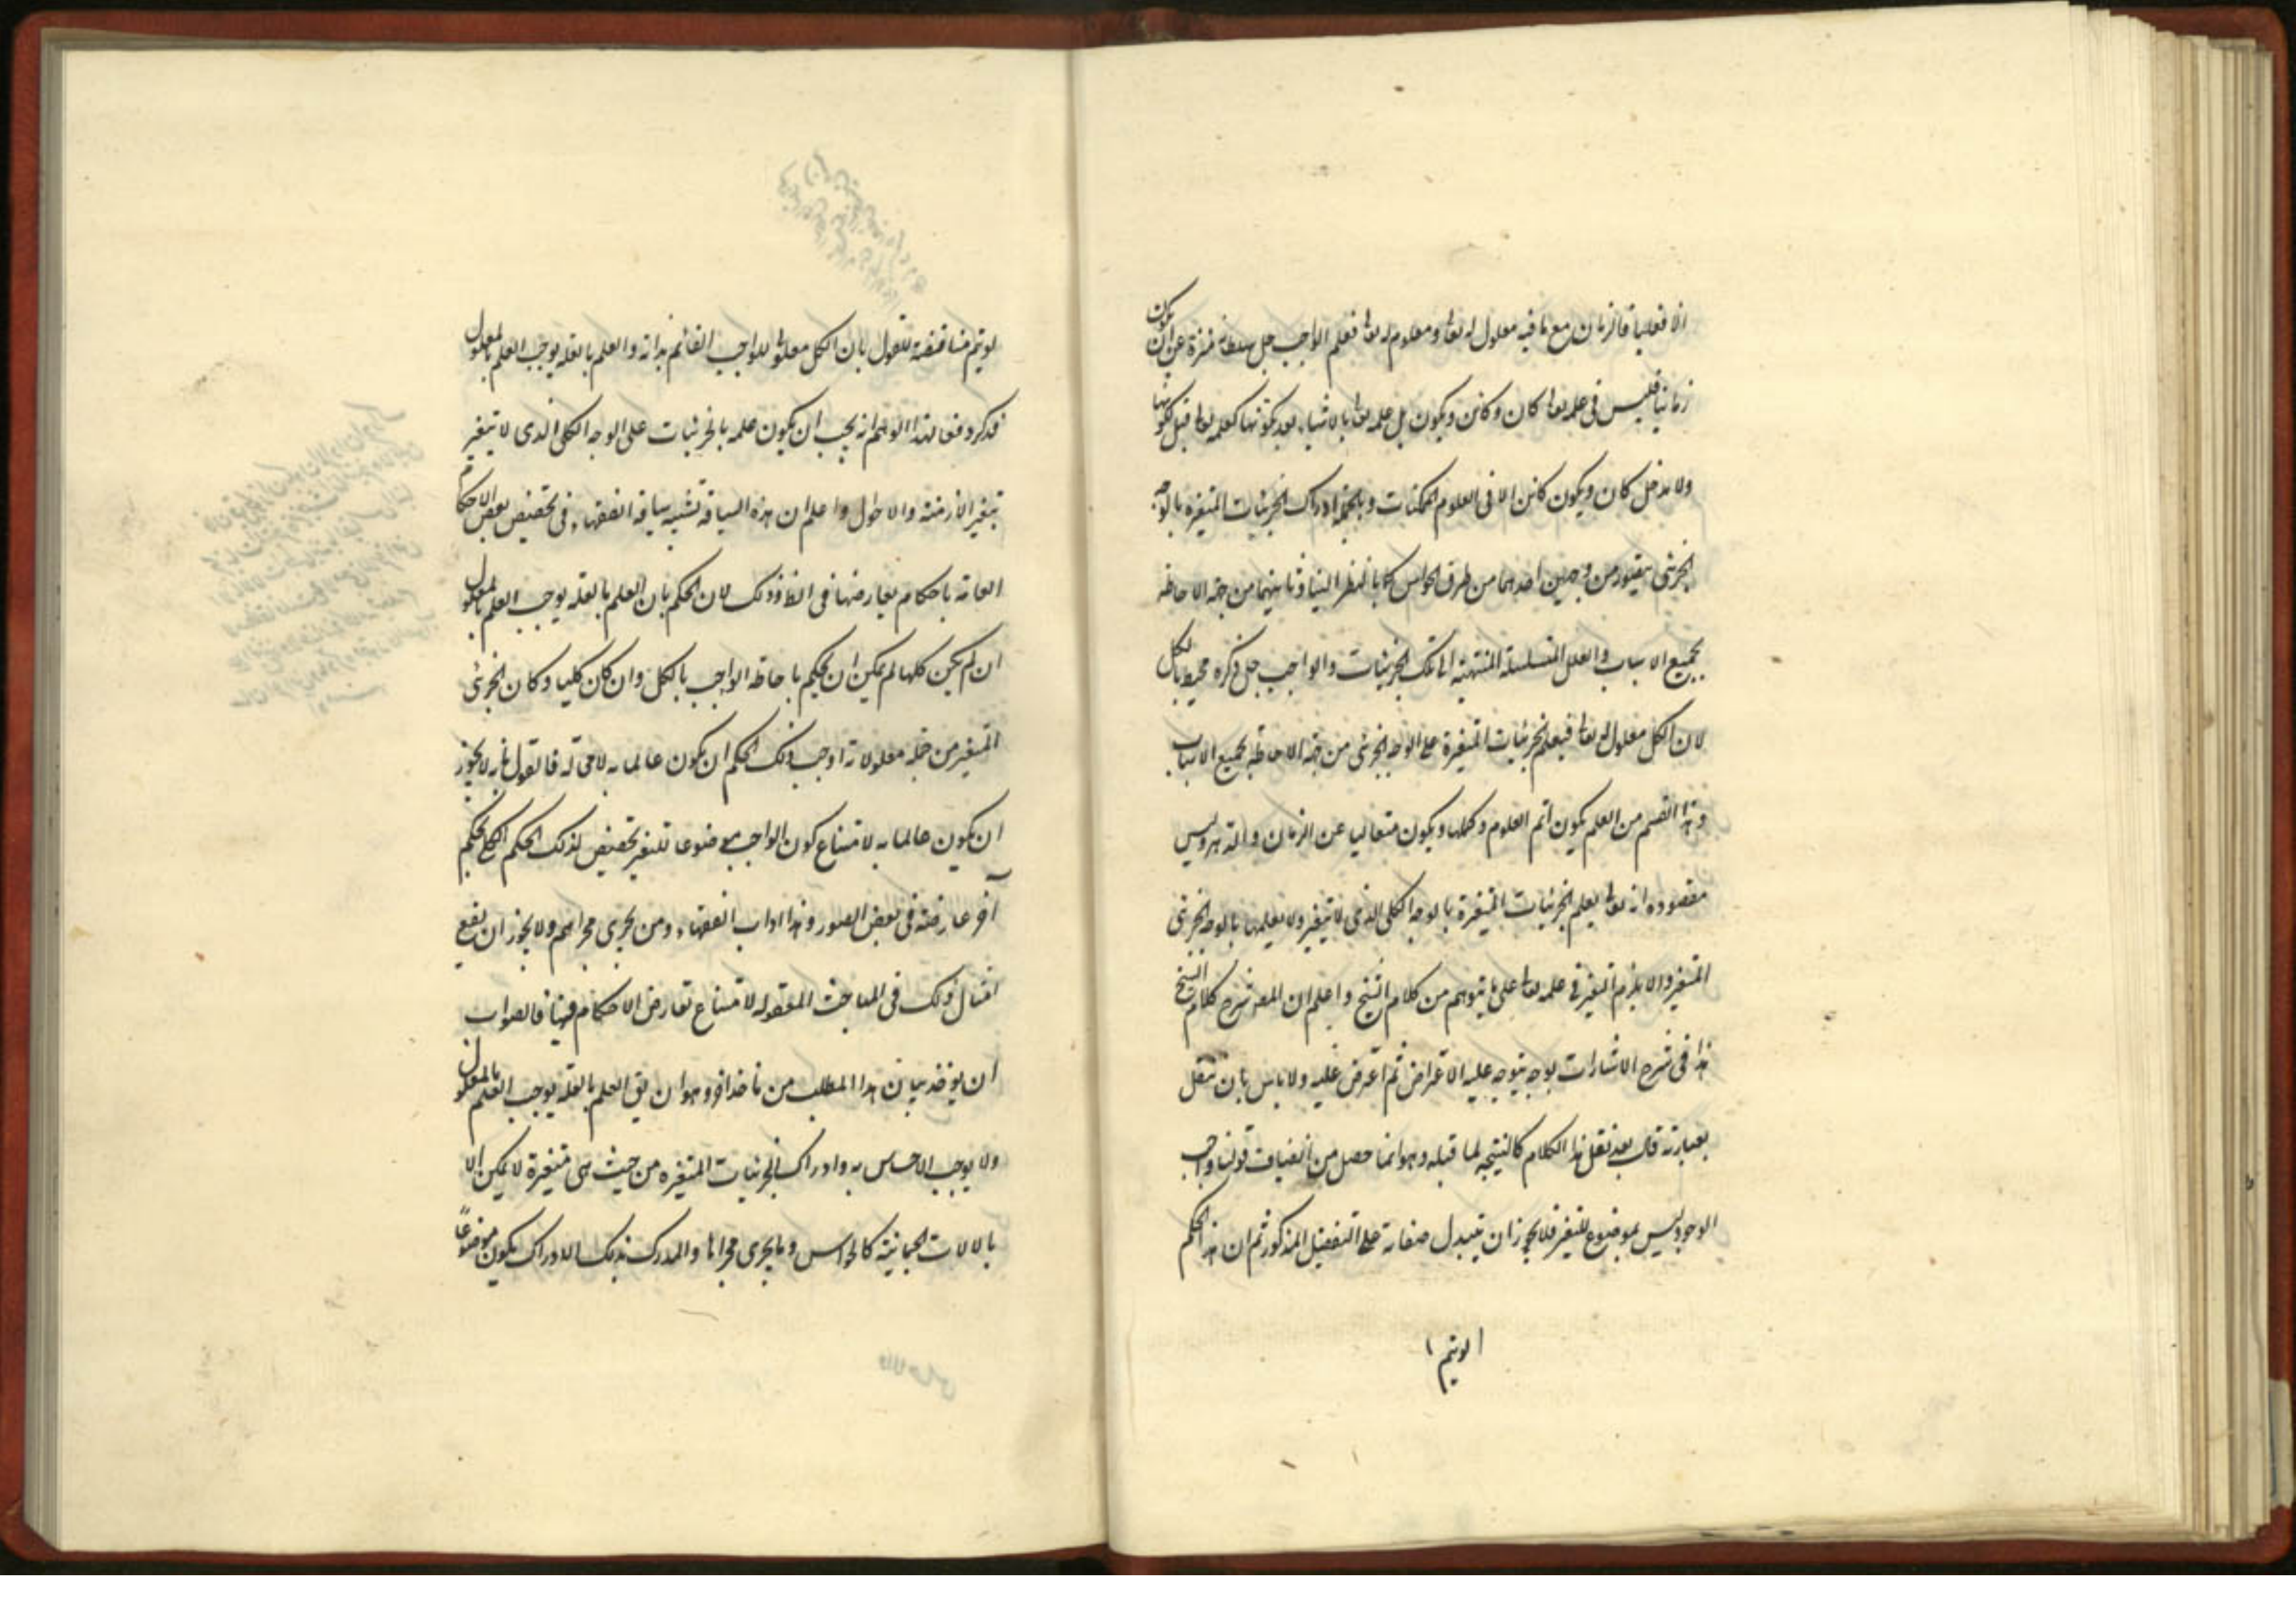 الا فعليا فالزمان مع ما فيه معلول له تعا و معلوم له تعا فعلم الواجب جل سلطانه منزه عن ان يكون
زمانيا فليس في علمه تعا كان و كائن و يكون بل علمه تعا بالاشياء بعد تكونها كعلمه تعا قبل تكونها
ولا مدخل كان و يكون كائن الا في العلوم الممكنات و بالجملة ادراك الجزئيات المتغيرة بالوجه
الجزئي يتصور من وجهين احدهما من طرق الحواس كما بالنظر الينا و ثانيهما من جهة الاحاطة
بجميع الاسباب و العلل المتسلسلة المنتهية الى تلك الجزئيات و الواجب جل ذكره محيط بالكل
لان الكل معلول له تعا فيعلم الجزئيات المتغيرة على الوجه الجزئي من جهة الاحاطة بجميع الاسباب
و هذا القسم من العلم يكون اتم العلوم و اكملها و يكون متعاليا عن الزمان و الدهر و ليس
مقصوده انه تعا يعلم الجزئيات المتغيرة بالوجه الكلي الذي لا يتغير ولا يعلمها بالوجه الجزئي
المتغير و الا يلزم التغير في علمه تعا على ما يتوهم من كلام الشيخ و اعلم ان المصر شرح كلام الشيخ
هذا في شرح الاشارات بوجه يتوجه عليه الاعتراض ثم اعترض عليه ولا باس بان ننقل
بعبارته قال بعد نقل هذا الكلام كالنتيجة لما قبله و هو انما حصل من انضياف قولنا واجب
الوجود ليس بموضوع للتغير فلا يجوز ان يتبدل صفاته على التفصيل المذكور ثم ان هذا الحكم
لو يتم
لو يتم مناقضته للقول بان الكل معلول للواجب القائم بذاته و العلم بالعلة يوجب العلم بالمعلول
فذكر دفعا لهذا التوهم انه يجب ان يكون علمه بالجزئيات على الوجه الكلي الذي لا يتغير
بتغير الازمنة و الاحوال و اعلم ان هذه السياقة تشبه سياقة الفقهاء في تخصيص بعض الاحكام
العامة باحكام يعارضها في الظ و ذلك لان الحكم بان العلم بالعلة يوجب العلم بالمعلول
ان لم يكن كليا لم يمكن ان يحكم باحاطة الواجب بالكل و ان كان كليا و كان الجزئي
المتغير من جملة معلولاته اوجب ذلك الحكم ان يكون عالما به لا محالة فالقول بانه لا يجوز
ان يكون عالما به لامتناع كون الواجب موضوعا للتغير تخصيص لذلك الحكم الكلي بحكم
آخر عارضه في بعض الصور و هذا اداب الفقهاء و من يجري مجراهم ولا يجوز ان يقع
امثال ذلك في المباحث المعقولة لامتناع تعارض الاحكام فيها فالصواب
ان يؤخذ بيان هذا المطلب من ماخذ اخر و هو ان يق العلم بالعلة يوجب العلم بالمعلول
ولا يوجب الاحساس به و ادراك الجزئيات المتغيره من حيث هي متغيرة لا يمكن الا
بالالات الجسمانية كالحواس و ما يجري مجراها و المدرك بذلك الادراك يكون موضوعا